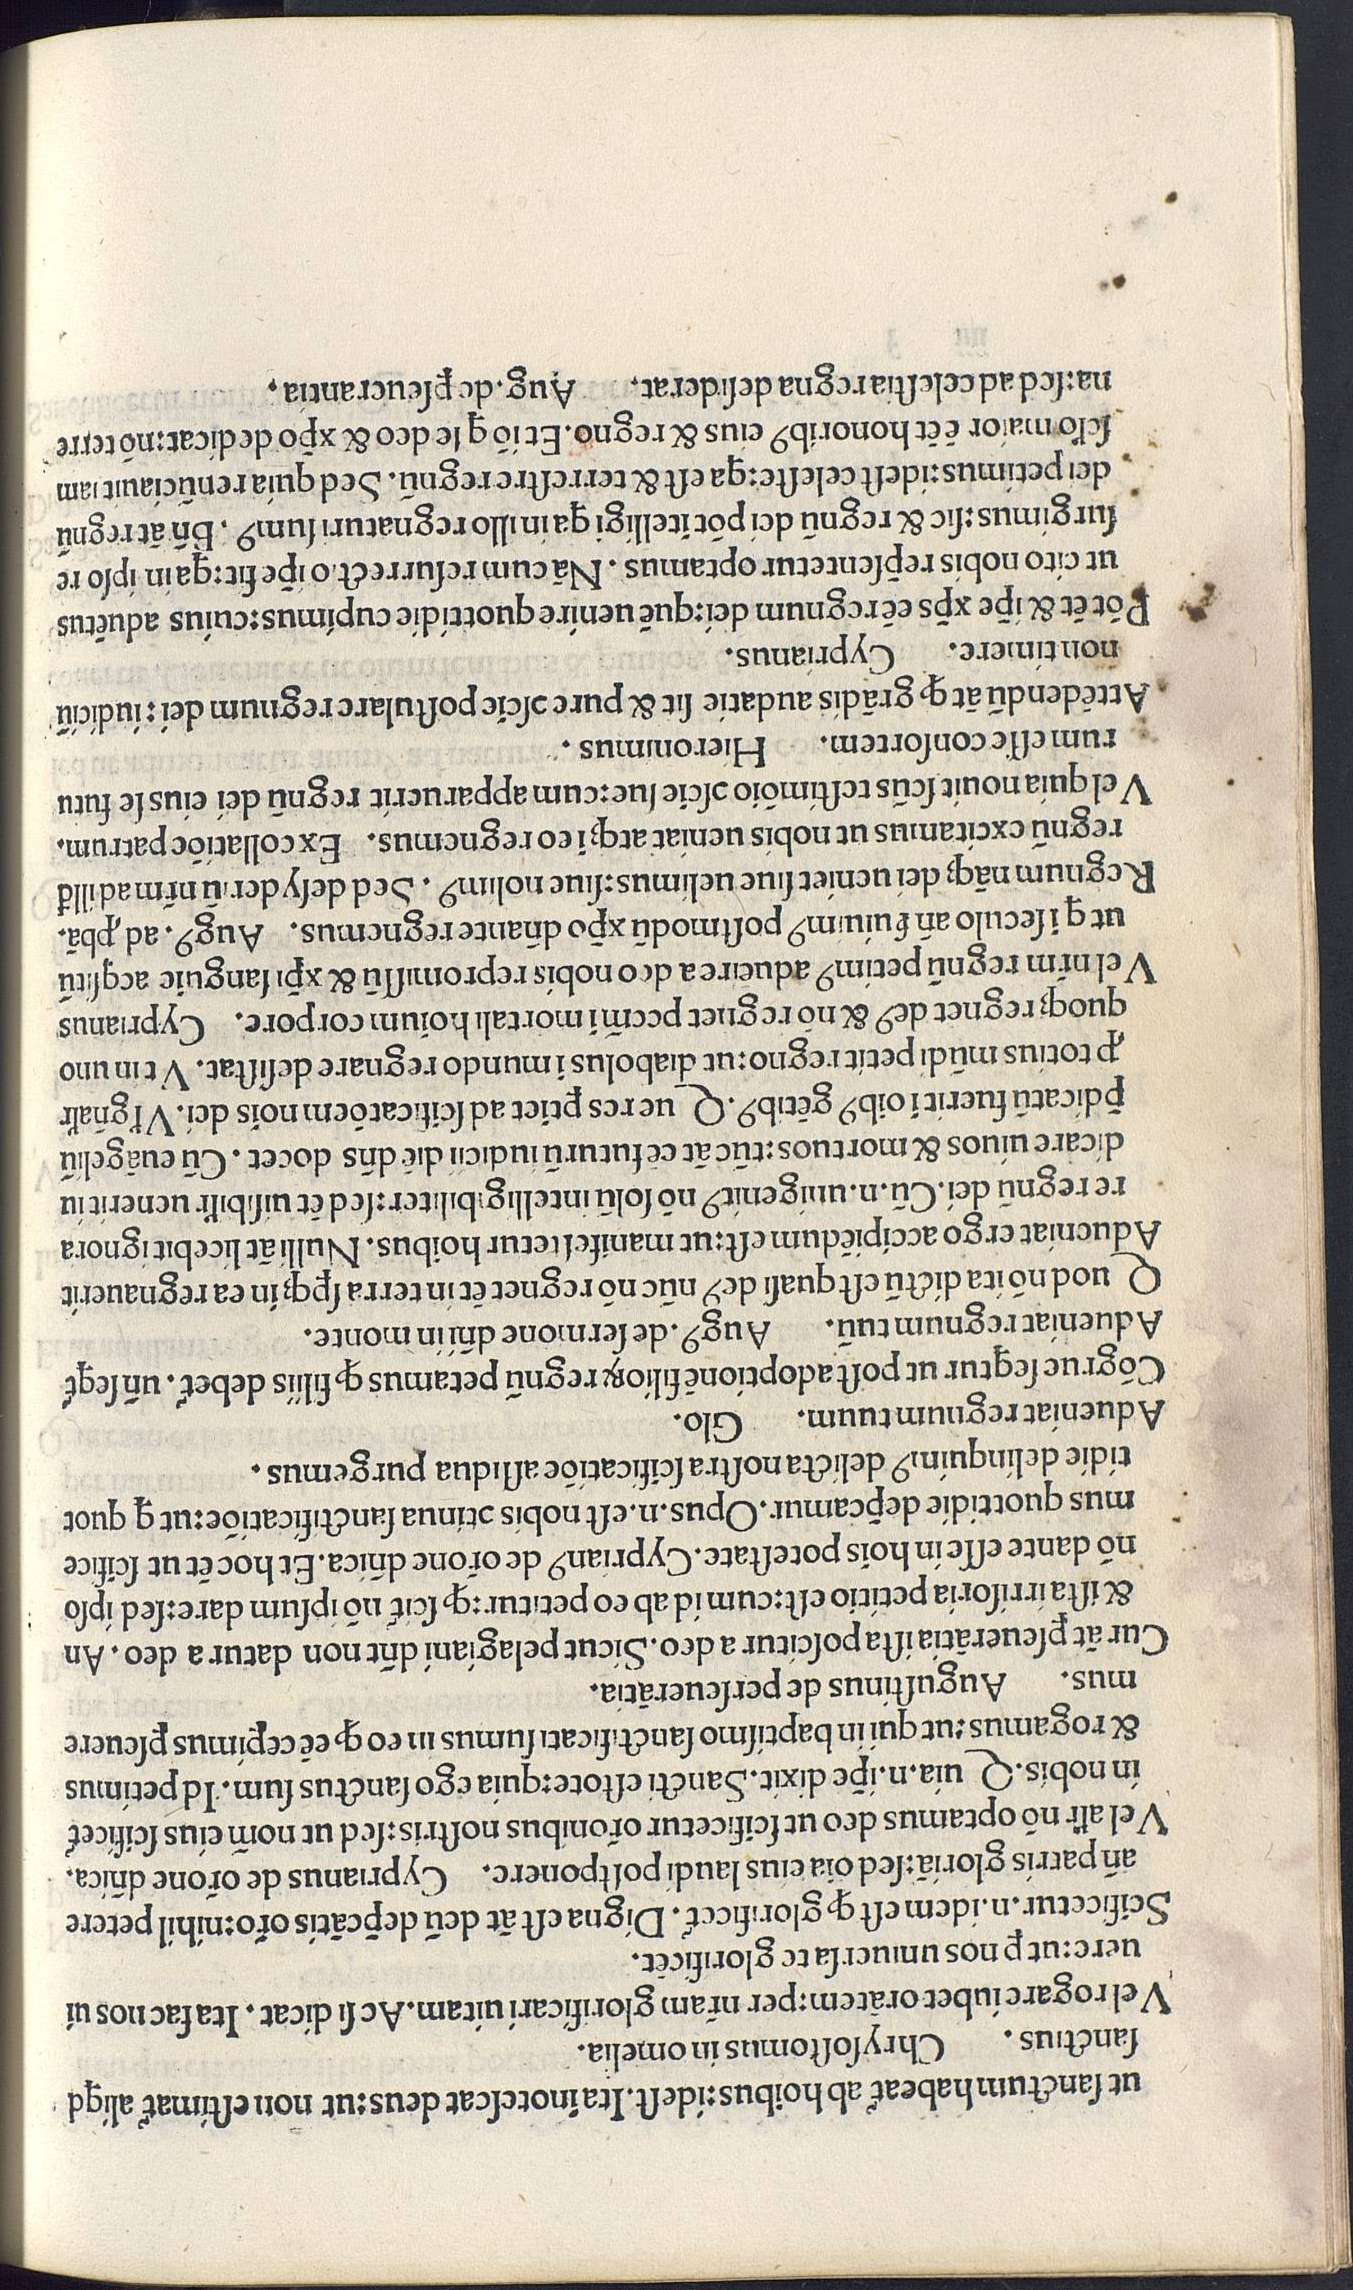 ut sanctum habeat᷑ ab hoibus: id est. Ita inotescat deus: ut non estimat᷑ aliqd
sanctius. Chrysostomus in omelia.
Vel rogare iubet orātem: per nr̄am glorificari uitam. Ac si dicat. Ita fac nos ui
uere: ut ꝑ nos uniuersa te glorificēt.
Scificetur .n. idem est ꝙ glorificet᷑. Digna est āt deū dep̄cātis or̄o: nihil petere
añ patris gloriā: sed oīa eius laudi postponere. Cyprianus de or̄one dn̄ica.
Vel alr̄ nō optamus deo ut scificetur or̄onibus nostris: sed ut nom̄ eius scificet᷑
in nobis. Quia .n. ip̄e dixit. Sancti estote: quia ego sanctus sum. Id petimus
& rogamus: ut qui in baptismo sanctificati sumus in eo ꝙ eē cepimus ꝑseuere
mus. Augustinus de perseuerātia.
Cur āt ꝑseuerātia ista poscitur a deo. Sicut pelagiani dn̄t non datur a deo. An
& ista irrisoria petitio est: cum id ab eo petitur: ꝙ scit᷑ nō ipsum dare: sed ipso
nō dante esse in hoīs potestate. Cyprianꝰ de or̄one dn̄ica. Et hoc ēt ut scifice
mus quottidie dep̄camur. Opus .n. est nobis ↄtinua sanctificatiōe: ut q quot
tidie delinquimꝰ delicta nostra scificatiōe assidua purgemus.
Adueniat regnum tuum. Glo.
Cōgrue seqtur ut post adoptionē filioꝝ regnū petamus ꝙ filiis debet᷑. un̄ seqt᷑
Adueniat regnum tuū. Augꝰ. de sermone dn̄i in monte.
Quod nō ita dictū est quasi deꝰ nūc nō regnet ēt in terra sꝑꝗ in ea regnauerit
Adueniat ergo accipiēdum est: ut manifestetur hoibus. Nulli āt licebit ignora
re regnū dei. Cū .n. unigenitꝰ nō solū intelligibiliter: sed ēt uisibilr̄ uenerit iu
dicare uiuos & mortuos: tūc āt eē futurū iudicii diē dn̄s docet. Cū euāgeliū
p̄dicatū fuerit ī oibꝰ gētibꝰ. Que res ꝑtiet ad scificatōem noīs dei. Vl̓ gñalr̄
ꝓ totius mūdi petit regno: ut diabolus ī mundo regnare desistat. Vt in uno
quoqꝫ regnet deꝰ & nō regnet pcc̄m ī mortali hoīum corpore. Cyprianus
Vel nr̄m regnū petimꝰ aduēire a deo nobis repromissū & xp̄i sanguīe acqsitū
ut q ī seculo añ suiuimꝰ postmodū xp̄o dn̄ante regnemus. Augꝰ. ad ꝓbā.
Regnum nāqꝫ dei ueniet siue uelimus: siue nolimꝰ. Sed desyderiū nr̄m ad illd̄
regnū excitamus ut nobis ueniat atqꝫ ī eo regnemus. Ex collatiōe patrum.
Vel quia nouit scūs testimōio ↄscīe sue: cum apparuerit regnū dei eius se futu
rum esse consortem. Hieronimus.
Attēdendū āt ꝙ grādis audatie sit & pure ↄscīe postulare regnum dei: iudiciū
non timere. Cyprianus.
Pōt ēt & ip̄e xp̄s eē regnum dei: quē uenire quottidie cupimus: cuius aduētus
ut cito nobis rep̄sentetur optamus. Nā cum resurrect.o ip̄e sit: qa in ipso re
surgimus: sic & regnū dei pōt ītelligi qa in illo regnaturi sumꝰ. Bn̄ āt regnū
dei petimus: id est celeste: qa est & terrestre regnū. Sed quia renūciauit iam
sclo maior ē ēt honoribꝰ eius & regno. Et iō q se deo & xp̄o dedicat: nō terre
na: sed ad celestia regna desiderat. Aug. de ꝑseuerantia.